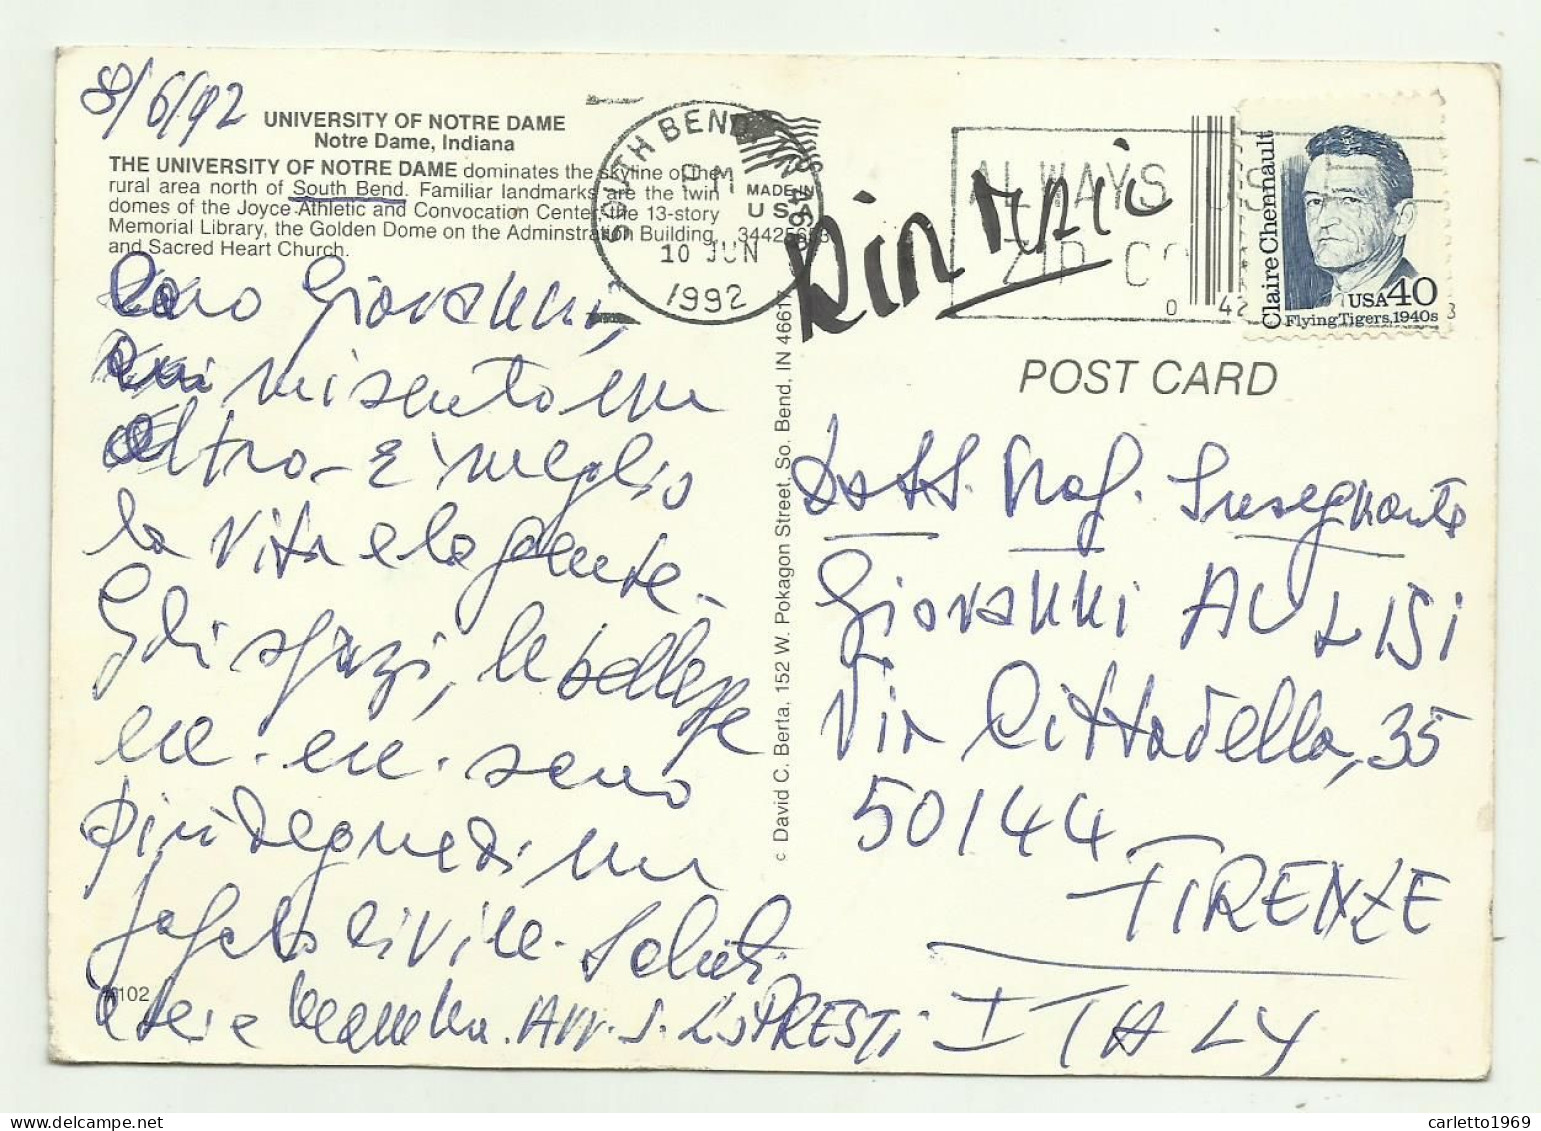 8/6/92
UNIVERSITY OF NOTRE DAME
Notre Dame, Indiana
THE UNIVERSITY OF NOTRE DAME dominates the skyline of the
rural area north of South Bend. Familiar landmarks are the twin
domes of the Joyce Athletic and Convocation Center, the 13-story
Memorial Library, the Golden Dome on the Adminstration Building,
and Sacred Heart Church.
MADE IN
USA
SOUTH BEND, IN 466
PM
10 JUN
1992
ALWAYS USE
ZIP CO
0 42
3
Claire Chennault
USA 40
Flying Tigers, 1940s
POST CARD
Caro Giovanni,
qui mi sento un
altro. È meglio
la vita e la gente.
Gli spazi, le bellezze
ecc. ecc. sono
più degne di un
civile. Saluti
a te e mamma. Avv. S. LoPRESTI
102
© David C. Berta, 152 W. Pokagon Street, So. Bend, IN 46617
Dott. Prof. Insegnante
Giovanni AULISI
Via Cittadella, 35
50144
FIRENZE
ITALY
carletto1969